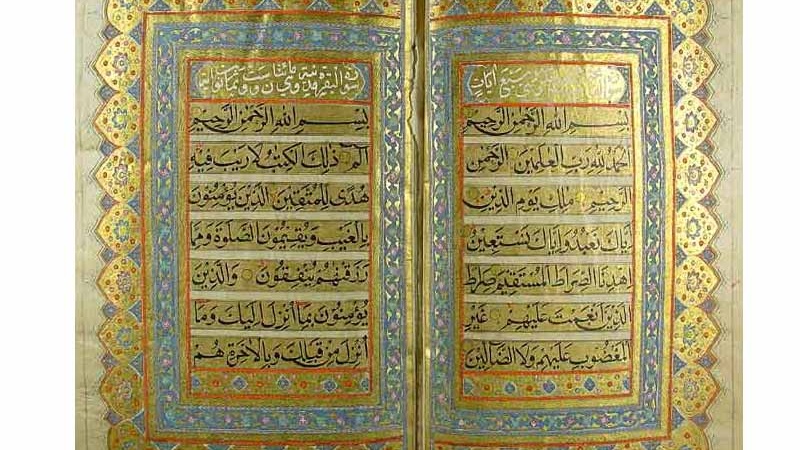 سورة وهي سبع آيات
بِسْمِ اللهِ الرَّحْمٰنِ الرَّحِيْمِ
اَلْحَمْدُ لِلّٰهِ رَبِّ الْعٰلَمِيْنَ الرَّحْمٰنِ
الرَّحِيْمِ مٰلِكِ يَوْمِ الدِّيْنِ
اِيَّاكَ نَعْبُدُ وَاِيَّاكَ نَسْتَعِيْنُ
اِهْدِنَا الصِّرَاطَ الْمُسْتَقِيْمَ صِرَاطَ
الَّذِيْنَ اَنْعَمْتَ عَلَيْهِمْ غَيْرِ
الْمَغْضُوْبِ عَلَيْهِمْ وَلَا الضَّالِّيْنَ
سورة البقرة مدنية وهي مائتان وست وثمانون
بِسْمِ اللهِ الرَّحْمٰنِ الرَّحِيْمِ
الٓمٓ ذٰلِكَ الْكِتٰبُ لَا رَيْبَ فِيْهِ
هُدًى لِلْمُتَّقِيْنَ الَّذِيْنَ يُؤْمِنُوْنَ
بِالْغَيْبِ وَيُقِيْمُوْنَ الصَّلٰوةَ وَمِمَّا
رَزَقْنٰهُمْ يُنْفِقُوْنَ وَالَّذِيْنَ
يُؤْمِنُوْنَ بِمَا اُنْزِلَ اِلَيْكَ وَمَا
اُنْزِلَ مِنْ قَبْلِكَ وَبِالْاٰخِرَةِ هُمْ